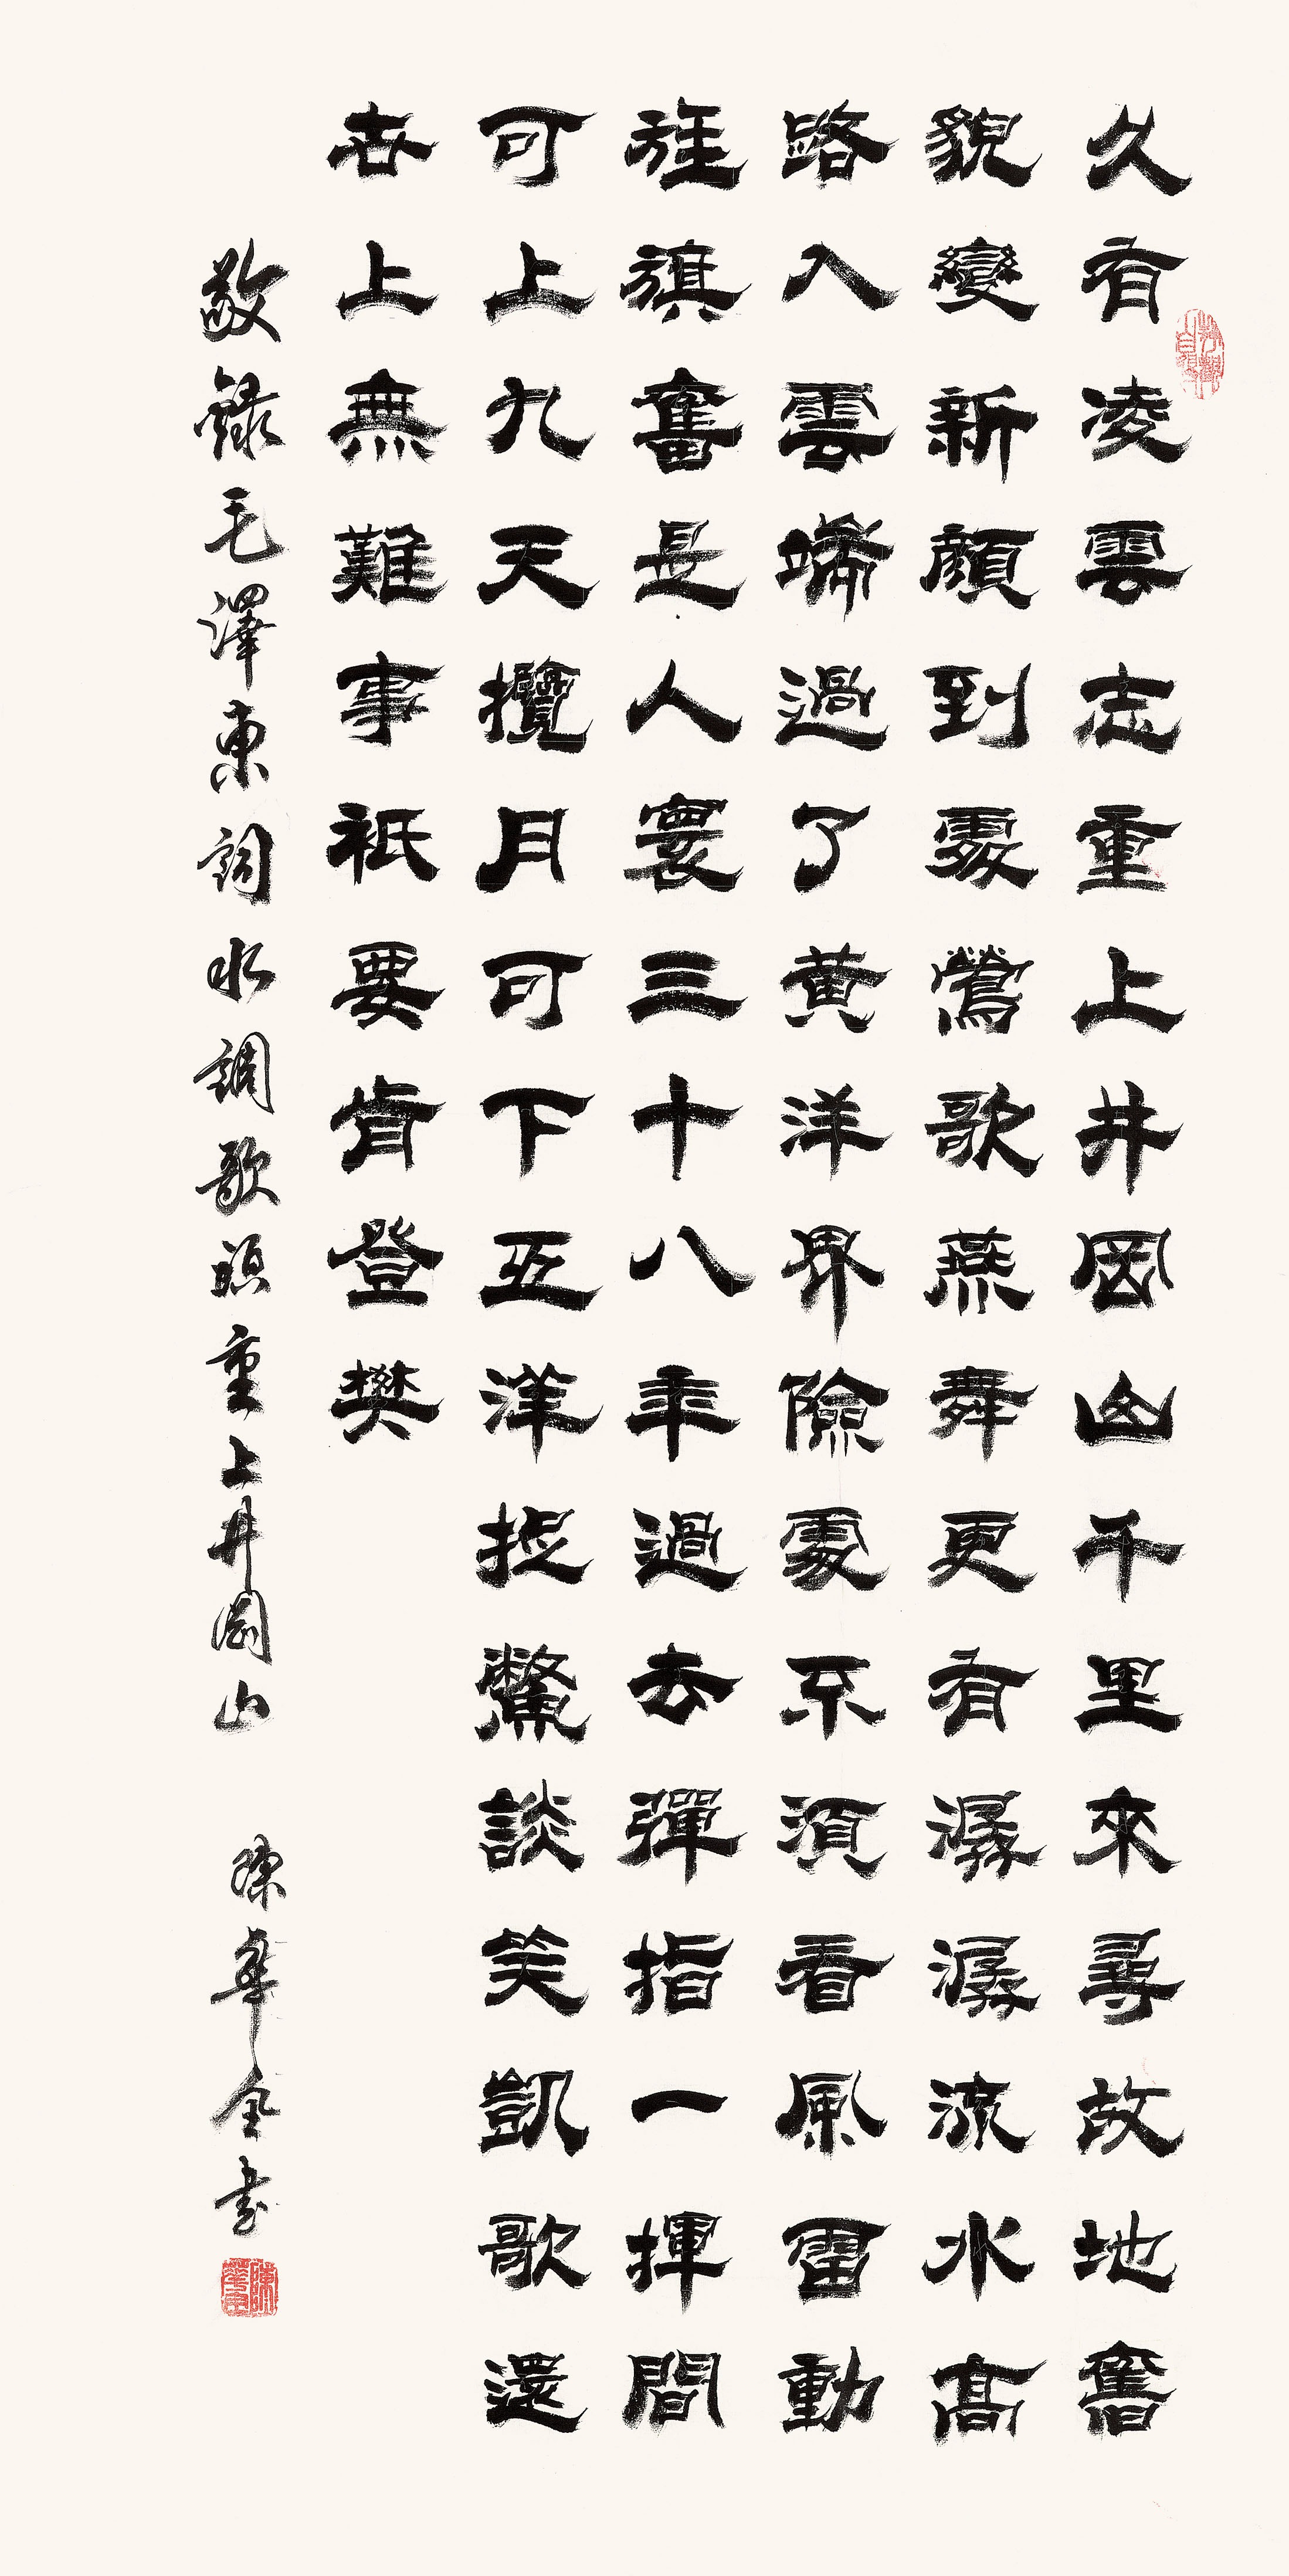 久有凌雲志重上井岡山千里來尋故地舊
貌變新顏到處鶯歌燕舞更有潺潺流水高
路入雲端過了黃洋界險處不須看風雷動
旌旗奮是人寰三十八年過去彈指一揮間
可上九天攬月可下五洋捉鱉談笑凱歌還
世上無難事衹要肯登攀
敬錄毛澤東詞水調歌頭重上井岡山
陳華金書